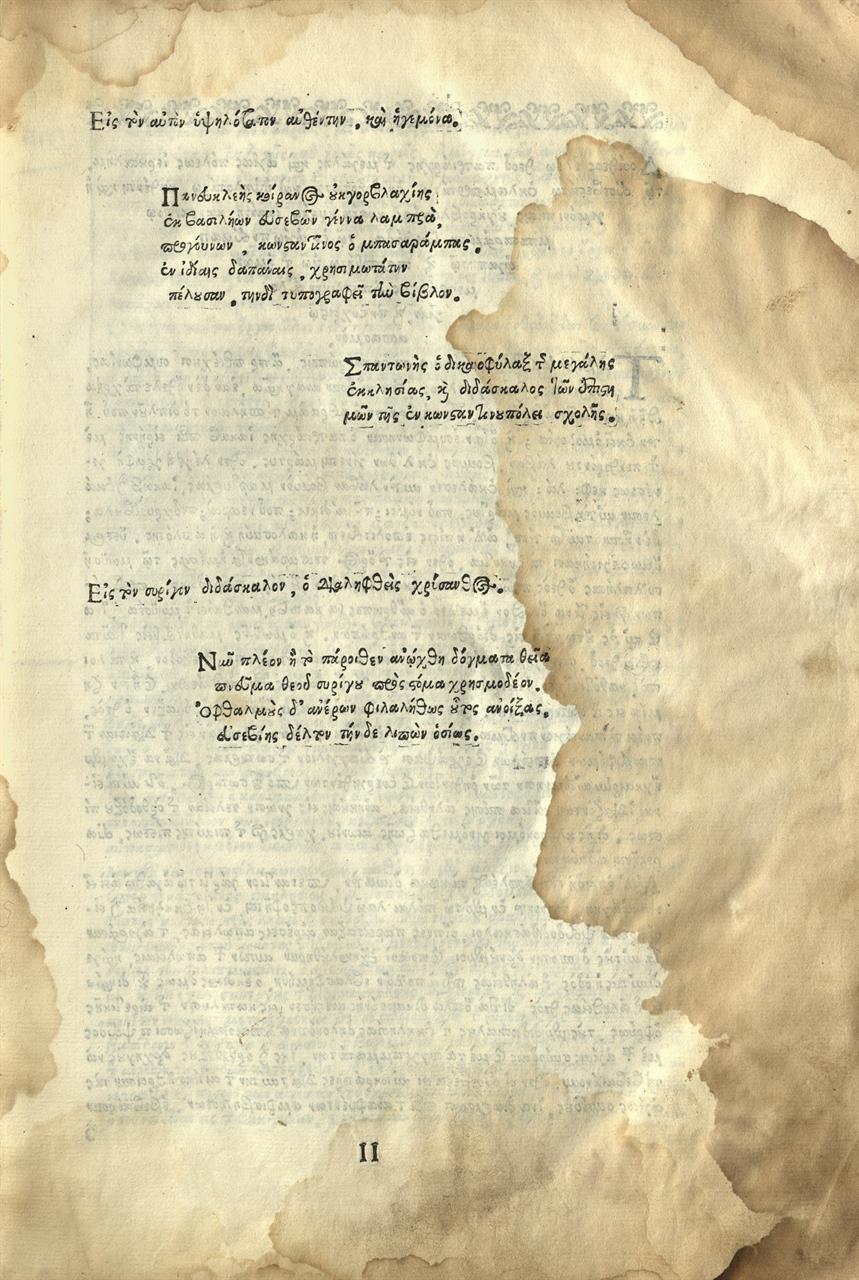 Εἰς τὸν αὐτὸν ὑψηλότατον αὐθέντην, καὶ ἡγεμόνα.
Πανευκλεὴς κοίρανος οὐκγροβλαχίης
ἐκ βασιλήων εὐσεβῶν γέννα λαμπρὰ,
προγόνων, κωνσταντῖνος ὁ μπασαράμπας.
ἐν ἰδίαις δαπάναις, χρησιμωτάτην
πέλουσαν, τηνδὶ τυπογραφεῖ τὴν βίβλον.
Σπαντωνὴς ὁ δικαιοφύλαξ τῆς μεγάλης
ἐκκλησίας, καὶ διδάσκαλος τῶν ἐπιστη
μῶν τῆς ἐν κωνσταντινουπόλει σχολῆς.
Εἰς τὸν συρίγου διδάσκαλον, ὁ διαληφθεὶς χρύσανθος.
Νῦν πλέον ἢ τὸ πάροιθεν ἀνῴχθη δόγματα θεῖα
πνεῦμα θεοῦ συρίγου πρὸς στόμα χρησμοδέον.
Ὀφθαλμοὺς δ' ἀνέρων φιλαλήθως οὗτος ἀνοίξας,
εὐσεβίης δέλτον τήνδε λιπὼν ὁσίως.
II